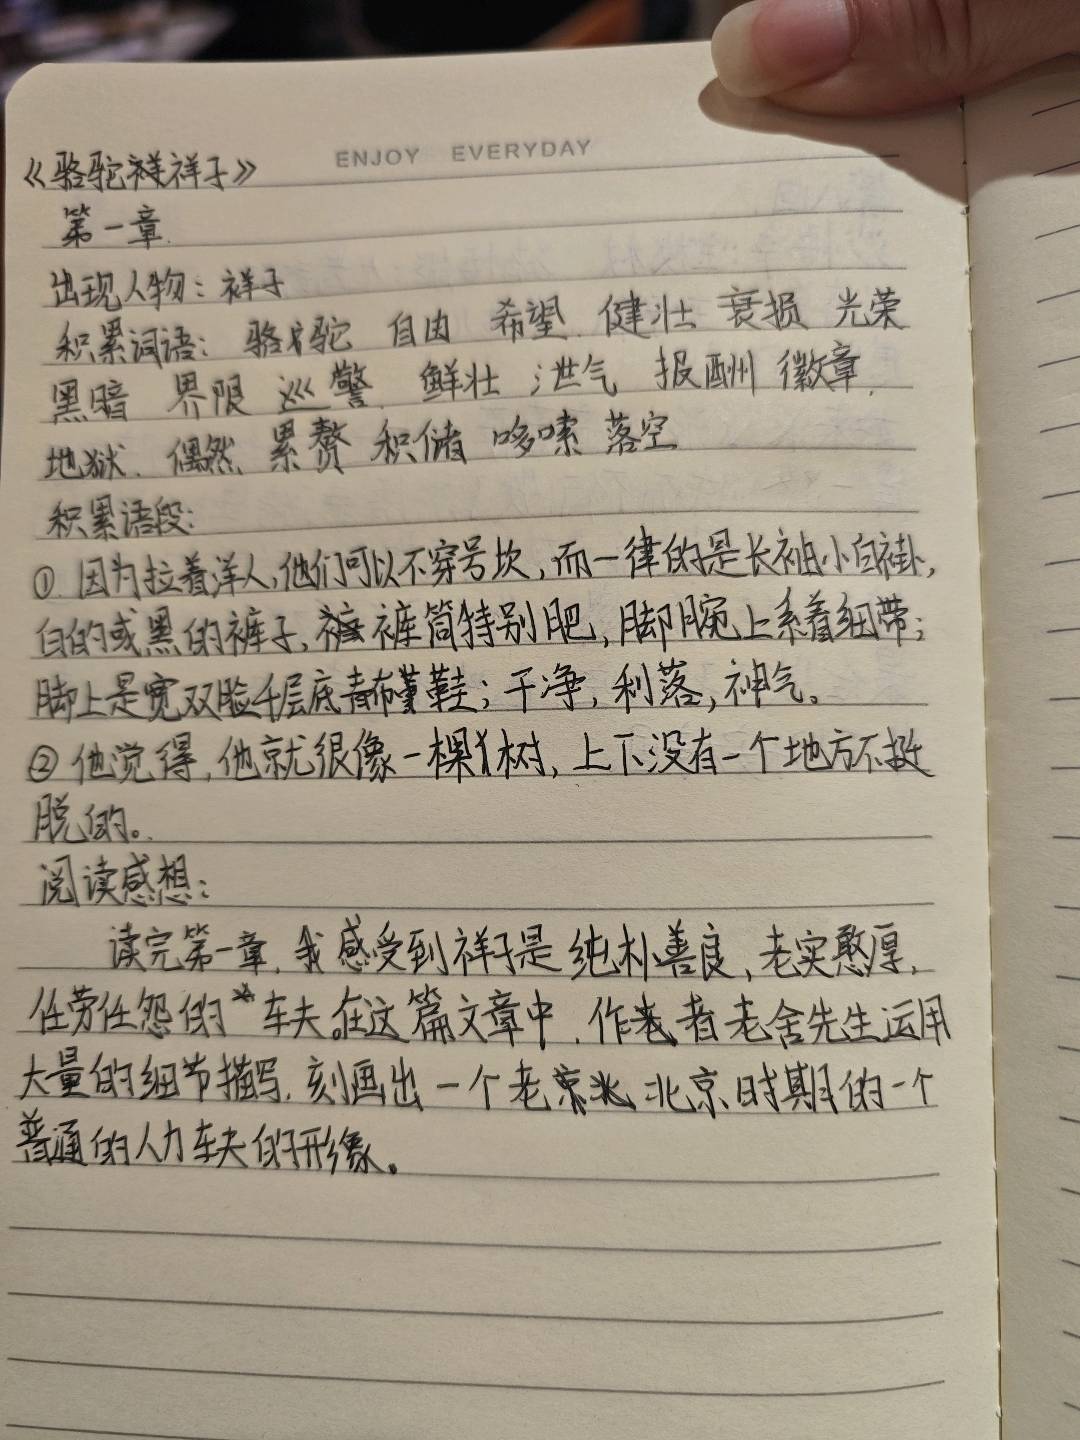 ENJOY EVERYDAY
《骆驼祥子》
第一章
出现人物：祥子
积累词语：骆驼 自由 希望 健壮 衰损 光荣
黑暗 界限 巡警 鲜壮 泄气 报酬 徽章
地狱 偶然 累赘 积储 哆嗦 落空
积累语段：
① 因为拉着洋人，他们可以不穿号坎，而一律的是长袖小白褂，
白的或黑的裤子，裤筒特别肥，脚腕上系着细带；
脚上是宽双脸千层底青布鞋；干净，利落，神气。
② 他觉得，他就很像一棵树，上下没有一个地方不挺
脱的。
阅读感想：
读完第一章，我感受到祥子是纯朴善良，老实憨厚，
任劳任怨的车夫。在这篇文章中，作者老舍先生运用
大量的细节描写，刻画出一个老北京时期的一个
普通的人力车夫的形象。